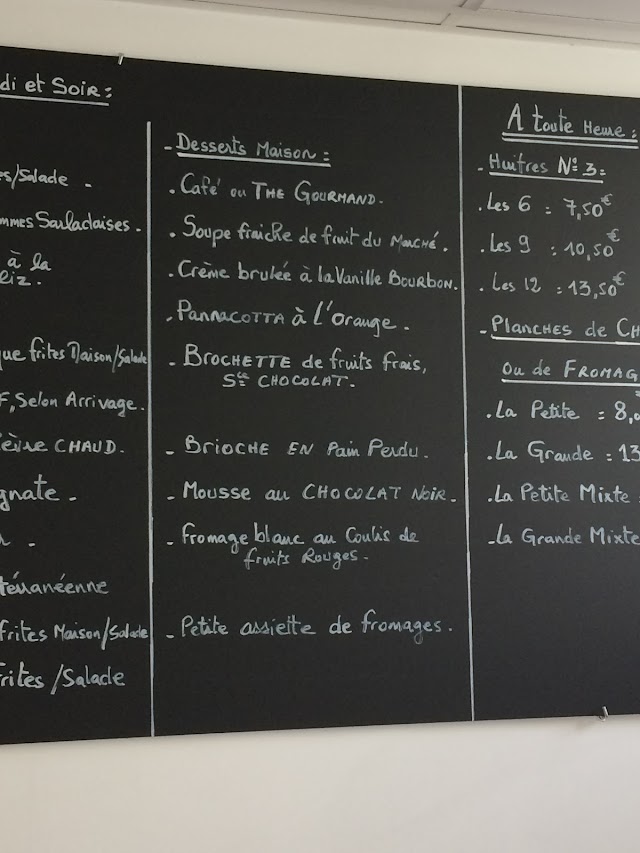 di et Soir :
es/Salade -
mmes Sarladaises .
à la
iz.
que frites Maison/Salade
F, Selon Arrivage.
èvre CHAUD.
gnate -
-
terranéenne
frites Maison/Salade
rites /Salade
- Desserts Maison :
. Café ou THE GOURMAND.
. Soupe fraiche de fruit du Marché .
- Crème brulée à la Vanille BOURBON.
. PANNACOTTA à L'Orange .
- BROCHETTE de fruits frais,
Sce CHOCOLAT.
- BRIOCHE EN Pain Perdu .
- Mousse au CHOCOLAT NOIR .
- fromage blanc au Coulis de
fruits Rouges -
- Petite assiette de fromages .
A toute Heure :
- Huitres N° 3 :
. Les 6 : 7,50€
. Les 9 : 10,50€
. Les 12 : 13,50€
- PLANCHES de CH
Ou de FROMAG
. La Petite = 8,0
. La Grande : 13
. La Petite Mixte
- La Grande Mixte